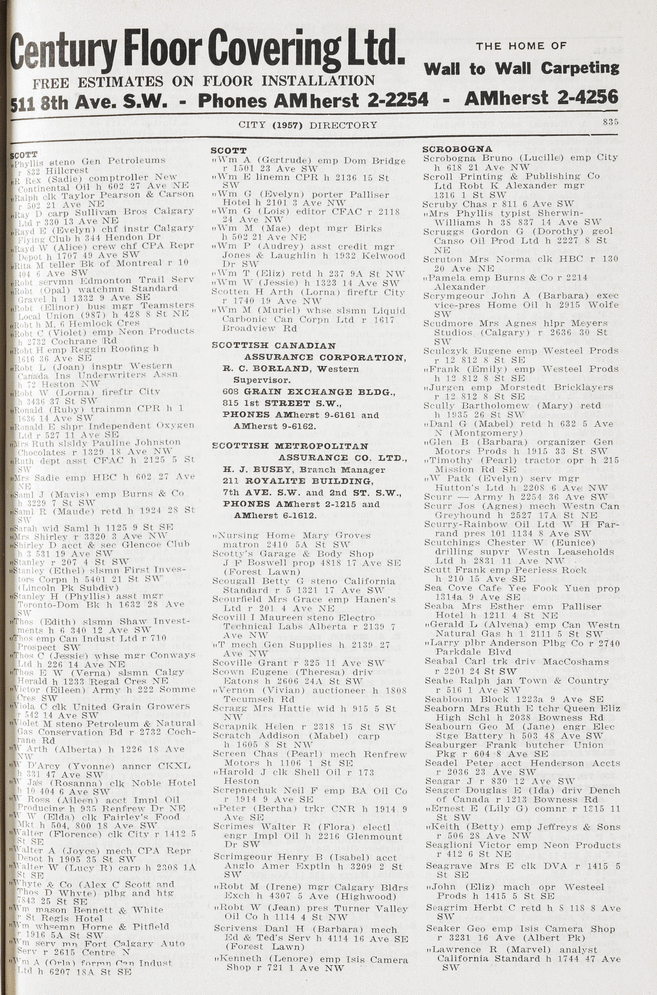 Century Floor Covering Ltd.
FREE ESTIMATES ON FLOOR INSTALLATION
THE HOME OF
Wall to Wall Carpeting
511 8th Ave. S.W. - Phones AMherst 2-2254 - AMherst 2-4256
CITY (1957) DIRECTORY
835
SCOTT
"Phyllis steno Gen Petroleums
r 832 Hillcrest
"R Rex (Sadie) comptroller New
Continental Oil h 602 27 Ave NE
"Ralph clk Taylor Pearson & Carson
r 502 21 Ave NE
"Ray D carp Sullivan Bros Calgary
Ltd r 330 13 Ave NE
"Rayd E (Evelyn) chf instr Calgary
Flying Club h 344 Hendon Dr
"Rayd W (Alice) crew chf CPA Repr
Depot h 1797 49 Ave SW
"Rita M teller Bk of Montreal r 10
404 6 Ave SW
"Robt servmn Edmonton Trail Serv
"Robt (Opal) watchmn Standard
Gravel h 1332 9 Ave SE
"Robt (Elinor) bus mgr Teamsters
Local Union (987) h 428 8 St NE
"Robt h M. 6 Hemlock Cres
"Robt C (Violet) emp Neon Products
h 2732 Cochrane Rd
"Robt H emp Reggin Roofing h
1616 36 Ave SE
"Robt L (Joan) insptr Western
Canada Ins Underwriters Assn
h 72 Heston NW
"Robt W (Lorna) fireftr City
h 3436 37 St SW
"Ronald (Ruby) trainmn CPR h 1
1636 14 Ave SW
"Ronald E shpr Independent Oxygen
Ltd r 527 11 Ave SE
"Mrs Ruth slsldy Pauline Johnston
Chocolates r 1329 18 Ave NW
"Ruth dept asst CFAC h 2125 5 St
SW
"Mrs Sadie emp HBC h 602 27 Ave
NE
"Saml J (Mavis) emp Burns & Co
h 3229 7 St SW
"Saml R (Maude) retd h 1924 28 St
SW
"Sarah wid Saml h 1125 9 St SE
"Mrs Shirley r 3320 3 Ave NW
"Shirley D acct & sec Glencoe Club
h 3 531 19 Ave SW
"Stanley r 207 4 St SW
"Stanley (Ethel) slsmn First Inves-
tors Corpn h 5401 21 St SW
(Lincoln Pk Subdiv)
"Stanley H (Phyllis) asst mgr
Toronto-Dom Bk h 1632 28 Ave
SW
"Thos (Edith) slsmn Shaw Invest-
ments h 6 340 12 Ave SW
"Thos emp Can Indust Ltd r 710
Prospect SW
"Thos C (Jessie) whse mgr Conways
Ltd h 226 14 Ave NE
"Thos E W (Verna) slsmn Calgy
Herald h 1233 Regal Cres NE
"Victor (Eileen) Army h 222 Somme
Cres SW
"Viola C clk United Grain Growers
r 542 14 Ave SW
"Violet M steno Petroleum & Natural
Gas Conservation Bd r 2732 Coch-
rane Rd
"W Arth (Alberta) h 1226 18 Ave
NW
"W D'Arcy (Yvonne) anncr CKXL
h 331 47 Ave SW
"W Jas (Rosanna) clk Noble Hotel
h 10 404 6 Ave SW
"W Ross (Aileen) acct Impl Oil
Producing h 935 Renfrew Dr NE
"W W (Elda) clk Fairley's Food
Mkt h 504, 800 18 Ave SW
"Walter (Florence) clk City r 1412 5
St SE
"Walter A (Joyce) mech CPA Repr
Depot h 1905 35 St SW
"Walter W (Lucy R) carp h 2308 1A
St SE
"Whyte & Co (Alex C Scott and
Thos D Whyte) plbg and htg
7843 25 St SE
"Wm mason Bennett & White
r St Regis Hotel
"Wm whsemn Horne & Pitfield
r 1916 5A St SW
"Wm serv mn Fort Calgary Auto
Serv r 2615 Centre N
"Wm A (Orla) formn Can Indust
Ltd h 6207 18A St SE
SCOTT
"Wm A (Gertrude) emp Dom Bridge
r 1501 23 Ave SW
"Wm E linemn CPR h 2136 15 St
SW
"Wm G (Evelyn) porter Palliser
Hotel h 2101 3 Ave NW
"Wm G (Lois) editor CFAC r 2118
24 Ave NW
"Wm M (Mae) dept mgr Birks
h 502 21 Ave NE
"Wm P (Audrey) asst credit mgr
Jones & Laughlin h 1932 Kelwood
Dr SW
"Wm T (Eliz) retd h 237 9A St NW
"Wm W (Jessie) h 1323 14 Ave SW
Scotten H Arth (Lorna) fireftr City
r 1740 19 Ave NW
"Wm M (Muriel) whse slsmn Liquid
Carbonic Can Corpn Ltd r 1617
Broadview Rd
SCOTTISH CANADIAN
ASSURANCE CORPORATION,
R. C. BORLAND, Western
Supervisor.
608 GRAIN EXCHANGE BLDG.,
815 1st STREET S.W.,
PHONES AMherst 9-6161 and
AMherst 9-6162.
SCOTTISH METROPOLITAN
ASSURANCE CO. LTD.,
H. J. BUSBY, Branch Manager
211 ROYALITE BUILDING,
7th AVE. S.W. and 2nd ST. S.W.,
PHONES AMherst 2-1215 and
AMherst 6-1612.
"Nursing Home Mary Groves
matron 2410 5A St SW
Scotty's Garage & Body Shop
J F Boswell prop 4818 17 Ave SE
(Forest Lawn)
Scougall Betty G steno California
Standard r 5 1321 17 Ave SW
Scourfield Mrs Grace emp Hanen's
Ltd r 201 4 Ave NE
Scovill I Maureen steno Electro
Technical Labs Alberta r 2139 7
Ave NW
"T mech Gen Supplies h 2139 27
Ave NW
Scoville Grant r 325 11 Ave SW
Scown Eugene (Theresa) driv
Eatons h 2606 24A St SW
"Vernon (Vivian) auctioneer h 1808
Tecumseh Rd
Scragg Mrs Hattie wid h 915 5 St
NW
Scrapnik Helen r 2318 15 St SW
Scratch Addison (Mabel) carp
h 1605 8 St NW
Screen Chas (Pearl) mech Renfrew
Motors h 1106 1 St SE
"Harold J clk Shell Oil r 173
Heston
Screpnechuk Neil F emp BA Oil Co
r 1914 9 Ave SE
"Peter (Bertha) trkr CNR h 1914 9
Ave SE
Scrimes Walter R (Flora) electl
engr Impl Oil h 2216 Glenmount
Dr SW
Scrimgeour Henry B (Isabel) acct
Anglo Amer Exptln h 3209 2 St
SW
"Robt M (Irene) mgr Calgary Bldrs
Exch h 4307 5 Ave (Highwood)
"Robt W (Jean) pres Turner Valley
Oil Co h 1114 4 St NW
Scrivens Danl H (Barbara) mech
Ed & Ted's Serv h 4114 16 Ave SE
(Forest Lawn)
"Kenneth (Lenore) emp Isis Camera
Shop r 721 1 Ave NW
SCROBOGNA
Scrobogna Bruno (Lucille) emp City
h 618 21 Ave NW
Scroll Printing & Publishing Co
Ltd Robt K Alexander mgr
1316 1 St SW
Scruby Chas r 811 6 Ave SW
"Mrs Phyllis typist Sherwin-
Williams h 38 837 14 Ave SW
Scruggs Gordon G (Dorothy) geol
Canso Oil Prod Ltd h 2227 8 St
NE
Scruton Mrs Norma clk HBC r 130
20 Ave NE
"Pamela emp Burns & Co r 2214
Alexander
Scrymgeour John A (Barbara) exec
vice-pres Home Oil h 2915 Wolfe
SW
Scudmore Mrs Agnes hlpr Meyers
Studios (Calgary) r 2636 30 St
SW
Sculczyk Eugene emp Westeel Prods
r 12 812 8 St SE
"Frank (Emily) emp Westeel Prods
h 12 812 8 St SE
"Jurgen emp Morstedt Bricklayers
r 12 812 8 St SE
Scully Bartholomew (Mary) retd
h 1935 26 St SW
"Danl G (Mabel) retd h 632 5 Ave
N (Montgomery)
"Glen B (Barbara) organizer Gen
Motors Prods h 1915 33 St SW
"Timothy (Pearl) tractor opr h 215
Mission Rd SE
"W Patk (Evelyn) serv mgr
Hutton's Ltd h 2208 6 Ave NW
Scurr — Army h 2254 36 Ave SW
Scurr Jos (Agnes) mech Westn Can
Greyhound h 2527 17A St NE
Scurry-Rainbow Oil Ltd W H Far-
rand pres 101 1134 8 Ave SW
Scutchings Chester W (Eunice)
drilling supvr Westn Leaseholds
Ltd h 2831 11 Ave NW
Scutt Frank emp Peerless Rock
h 210 15 Ave SE
Sea Cove Cafe Yee Fook Yuen prop
1314a 9 Ave SE
Seaba Mrs Esther emp Palliser
Hotel h 1211 4 St NE
"Gerald L (Alvena) emp Can Westn
Natural Gas h 1 2111 5 St SW
"Larry plbr Anderson Plbg Co r 2740
Parkdale Blvd
Seabal Carl trk driv MacCoshams
r 2201 24 St SW
Seabe Ralph jan Town & Country
r 516 1 Ave SW
Seabloom Block 1223a 9 Ave SE
Seaborn Mrs Ruth E tchr Queen Eliz
High Schl h 2038 Bowness Rd
Seabourn Geo M (Jane) engr Elec
Stge Battery h 503 48 Ave SW
Seaburger Frank butcher Union
Pkg r 604 8 Ave SE
Seadel Peter acct Henderson Accts
r 2036 23 Ave SW
Seagar J r 830 12 Ave SW
Seager Douglas E (Ida) driv Dench
of Canada r 1213 Bowness Rd
"Ernest E (Lily G) comnr r 1215 11
St SW
"Keith (Betty) emp Jeffreys & Sons
r 506 28 Ave NW
Seaglioni Victor emp Neon Products
r 412 6 St NE
Seagrave Mrs E clk DVA r 1415 5
St SE
"John (Eliz) mach opr Westeel
Prods h 1415 5 St SE
Seagrim Herbt C retd h 8 118 8 Ave
SW
Seaker Geo emp Isis Camera Shop
r 3231 16 Ave (Albert Pk)
"Lawrence R (Marvel) analyst
California Standard h 1744 47 Ave
SW